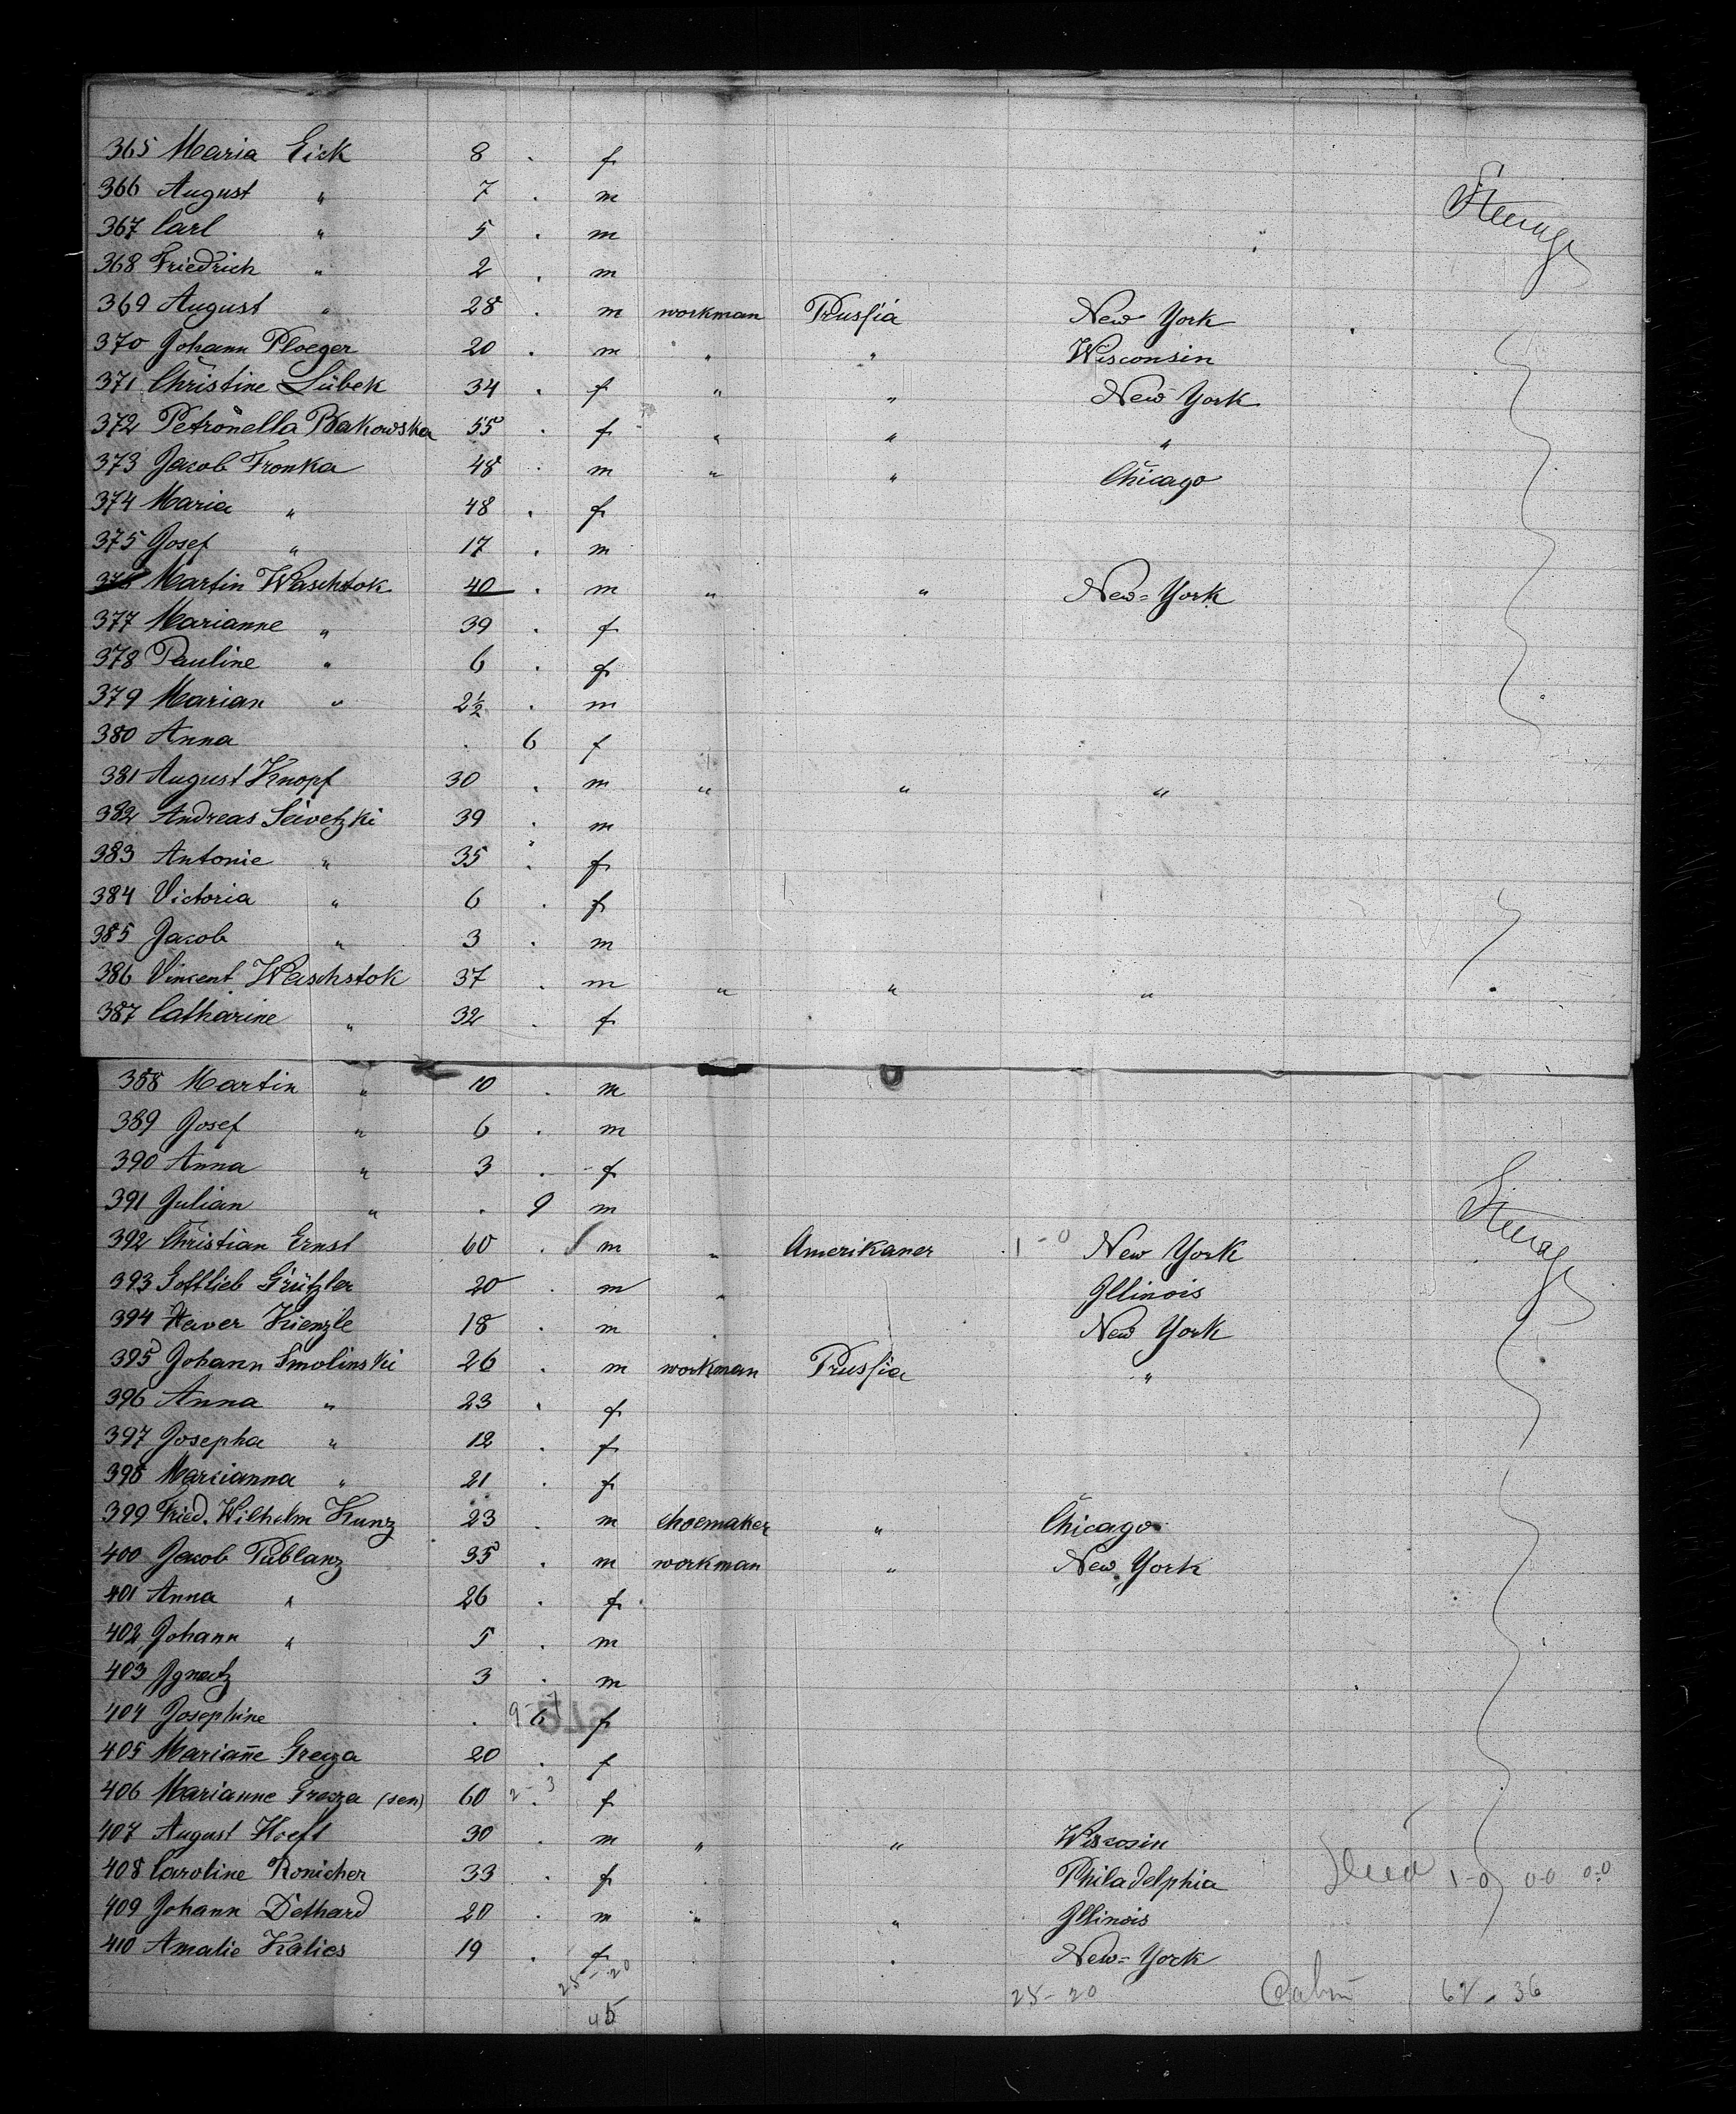 365 Maria Eick 8 . f
366 August " 7 . m Steerage
367 Carl " 5 . m
368 Friedrich " 2 . m
369 August " 28 . m workman Prussia New York
370 Johann Ploeger 20 . m " " Wisconsin
371 Christine Lübek 34 . f " " New York
372 Petronella Bakowska 55 . f " " "
373 Jacob Fronka 48 . m " " Chicago
374 Maria " 48 . f
375 Josef " 17 . m
376 Martin Waschtok 40 . m " " New=York
377 Marianne " 39 . f
378 Pauline " 6 . f
379 Marian " 2½ . m
380 Anna . 6 f
381 August Knopf 30 . m " " "
382 Andreas Seivetzki 39 . m
383 Antonie " 35 . f
384 Victoria " 6 . f
385 Jacob " 3 . m
386 Vincent Waschstok 37 . m " " "
387 Catharine " 32 . f
388 Martin " 10 . m
389 Josef " 6 . m
390 Anna " 3 . f
391 Julian " . 9 m Steerage
392 Christian Ernst 60 . m " Amerikaner 1-0 New York
393 Gottlieb Grützler 20 . m " Illinois
394 Xaver Kienzle 18 . m New York
395 Johann Smolinski 26 . m workman Prussia "
396 Anna " 23 . f
397 Josepha " 12 . f
398 Marianna " 21 . f
399 Fried. Wilhelm Kunz 23 . m shoemaker " Chicago
400 Jacob Publanz 35 . m workman " New York
401 Anna " 26 . f
402 Johann " 5 . m
403 Ignatz 3 . m
404 Josephine . 6 f
405 Mariañe Grezza 20 . f
406 Marianne Grezza (sen) 60 2-3 f
407 August Hoeft 30 . m " " Wiscosin
408 Caroline Ronicher 33 . f Philadelphia 1-0 0-0 0-0
409 Johann Dethard 20 . m " " Illinois
410 Amalie Kalies 19 . f New=York
25-20 25-20 Cabin 62 . 36
45